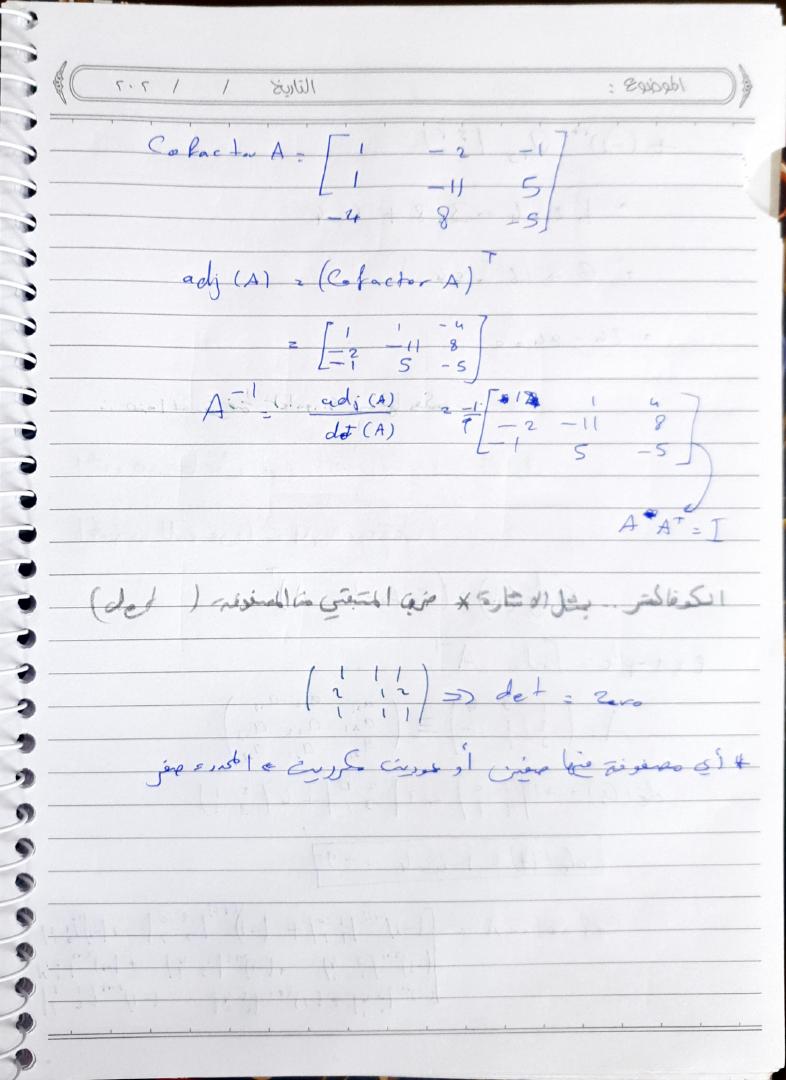 الموضوع : التاريخ / / ٢٠٢
Cofactor A = [ 1 -2 -1
1 -11 5
-4 8 -5 ]
adj (A) = (Cofactor A)ᵀ
= [ 1 1 -4
-2 -11 8
-1 5 -5 ]
A⁻¹ = adj (A) / det (A) = -1/9 [ 1 4
-2 -11 8
-1 5 -5 ]
A * Aᵀ = I
الكوفاكتر .. بمثل الاشارة * ضرب المتبقي من المصفوفة ( det )
( 1 1 1
2 1 2
1 1 1 ) => det = Zero
* أي مصفوفة فيها صفين أو عمودين مكررين المحدد = صفر